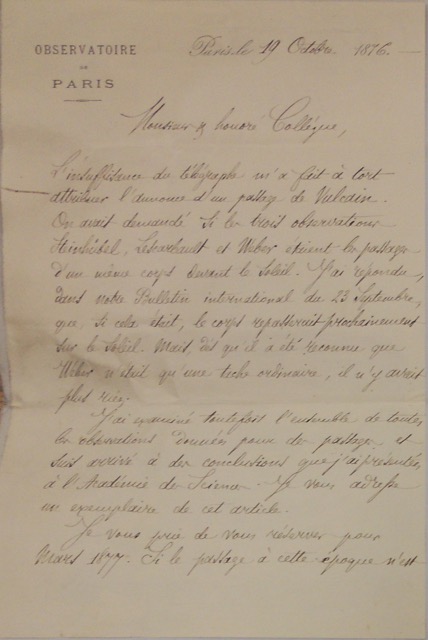 OBSERVATOIRE
DE
PARIS
Paris, le 19 Octobre 1876.
Monsieur & honoré Collégue,
L'insuffisance du télégraphe m'a fait à tort
attribuer l'annonce d'un passage de Vulcain.
On avait demandé si les trois observations
Steinhübel, Lescarbault et Weber étaient le passage
d'un même corps devant le Soleil. J'ai répondu,
dans notre Bulletin international du 23 Septembre,
que, si cela était, le corps repasserait prochainement
sur le Soleil. Mais, dès qu'il a été reconnu que
Weber n'était qu'une tache ordinaire, il n'y avait
plus rien.
J'ai examiné toutefois l'ensemble de toutes
les observations données pour des passages et
suis arrivé à des conclusions que j'ai présentées
à l'Académie des Sciences. Je vous adresse
un exemplaire de cet article.
Je vous prie de vous réserver pour
Mars 1877. Si le passage à cette époque n'est